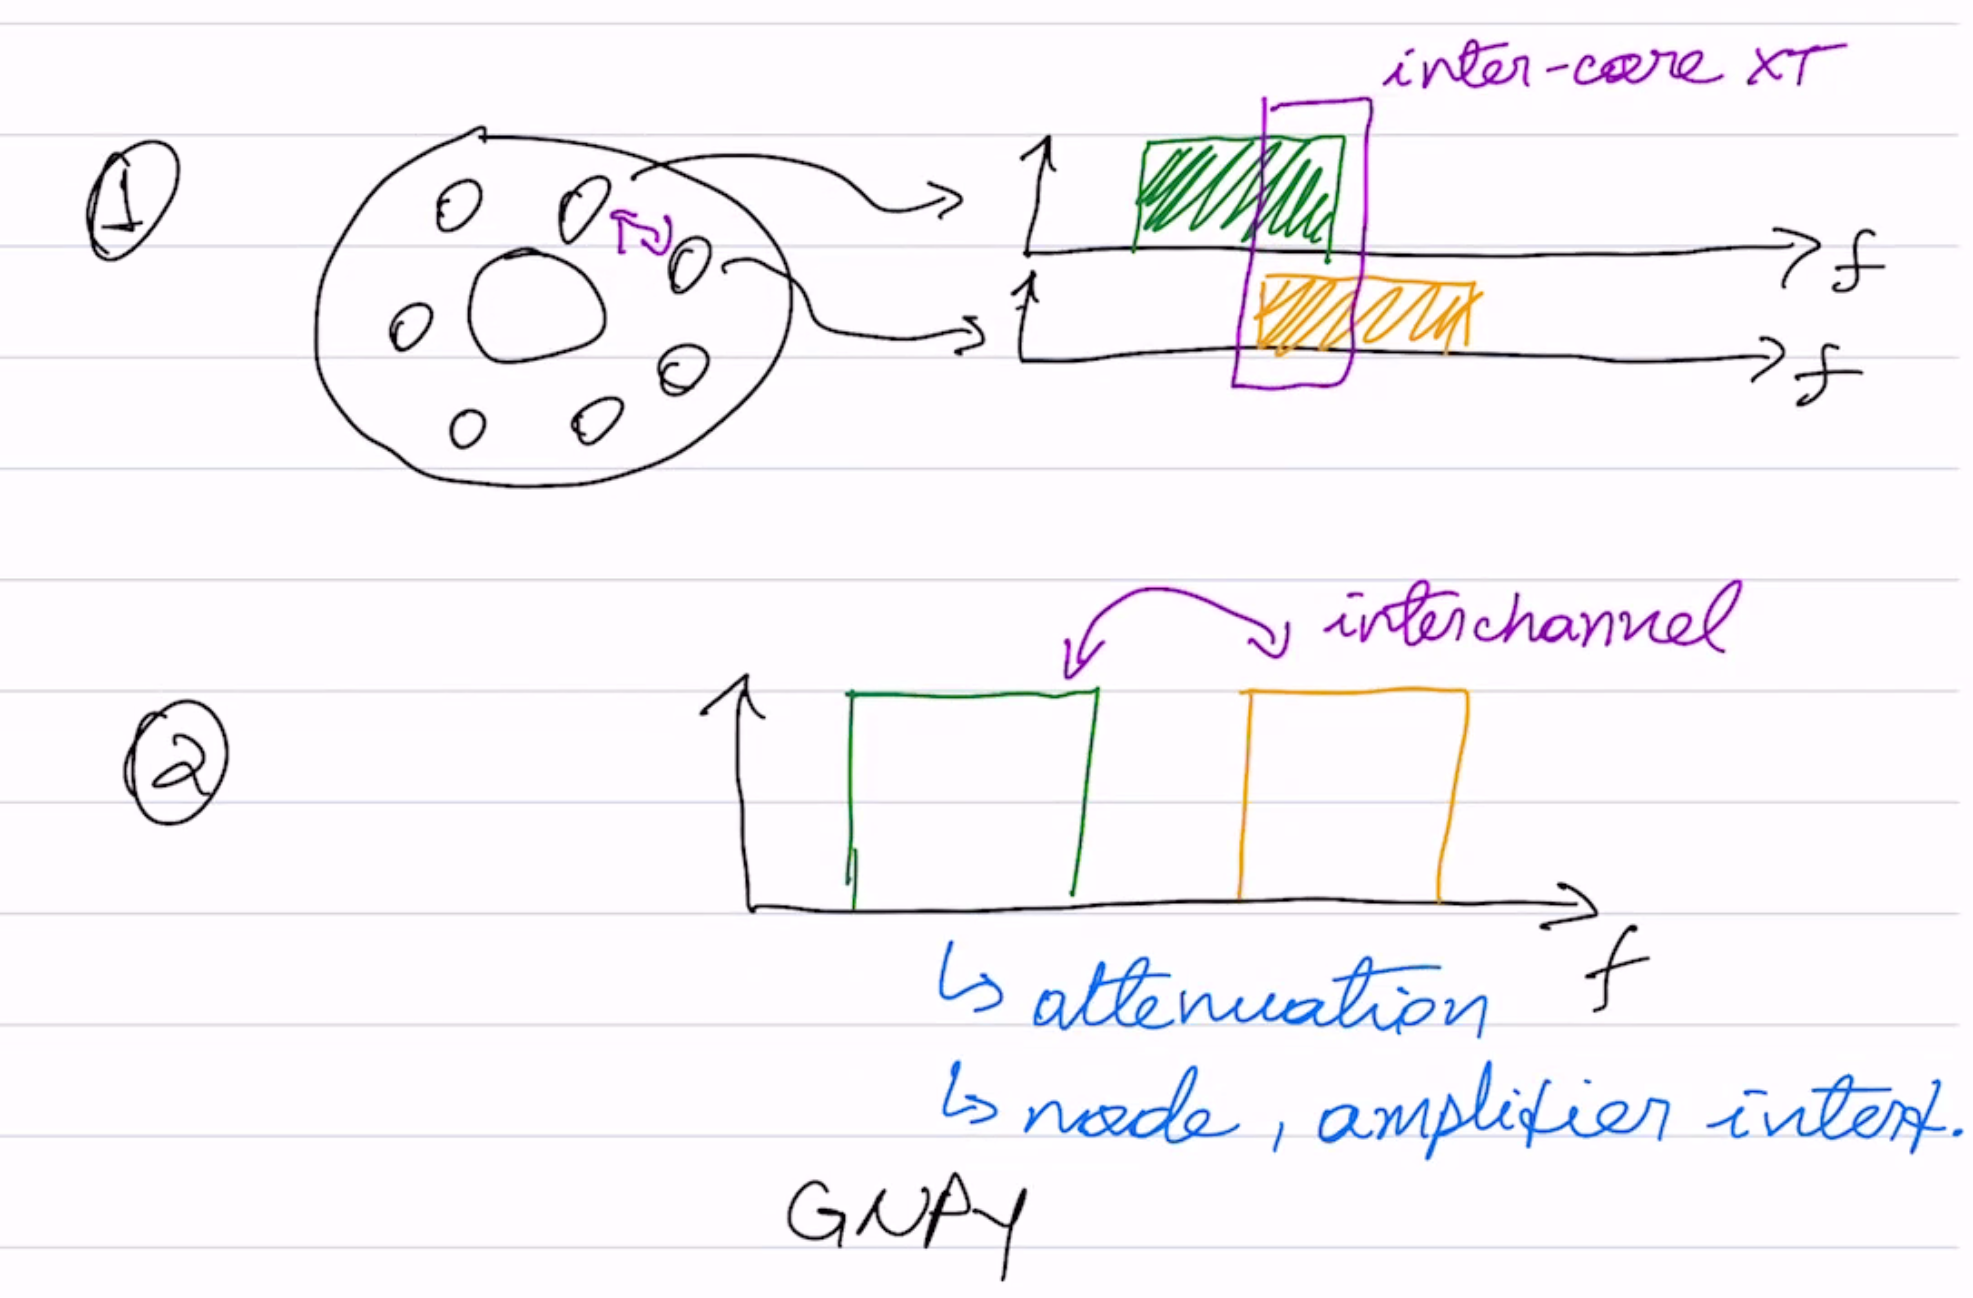 inter-core XT
1
f
f
interchannel
2
f
↳ attenuation
↳ node, amplifier interf.
GNPY